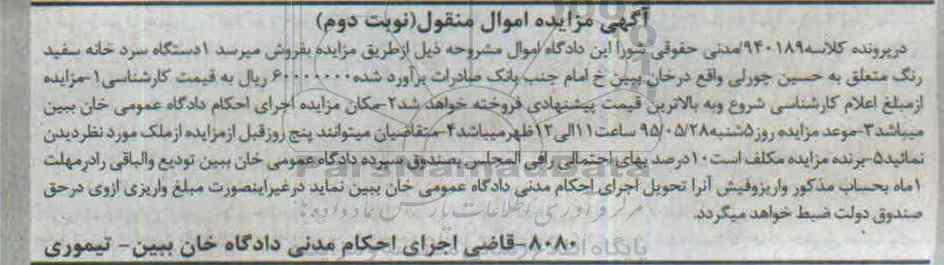 آگهی مزایده اموال منقول(نوبت دوم)
درپرونده کلاسه۹۴۰۱۸۹/مدنی حقوقی شورا این دادگاه اموال مشروحه ذیل ازطریق مزایده بفروش میرسد ۱دستگاه سرد خانه سفید
رنگ متعلق به حسین چورلی واقع درخان ببین خ امام جنب بانک صادرات برآورد شده۶۰۰۰۰۰۰۰ ریال به قیمت کارشناسی۱-مزایده
ازمبلغ اعلام کارشناسی شروع وبه بالاترین قیمت پیشنهادی فروخته خواهد شد۲-مکان مزایده اجرای احکام دادگاه عمومی خان ببین
میباشد۳-موعد مزایده روز ۵شنبه۹۵/۰۵/۲۸ ساعت۱۱الی۱۲ظهرمیباشد۴-متقاضیان میتوانند پنج روزقبل ازمزایده ازملک مورد نظردیدن
نمائید۵-برنده مزایده مکلف است۱۰درصد بهای احتمالی رافی المجلس بصندوق سپرده دادگاه عمومی خان ببین تودیع والباقی رادرمهلت
۱ماه بحساب مذکور واریزوفیش آنرا تحویل اجرای احکام مدنی دادگاه عمومی خان ببین نماید درغیراینصورت مبلغ واریزی ازوی درحق
صندوق دولت ضبط خواهد میگردد.
۸۰۸۰-قاضی اجرای احکام مدنی دادگاه خان ببین- تیموری
ParsNamadData
مرکز و آوری اطلاعات پارس نماد داده ها